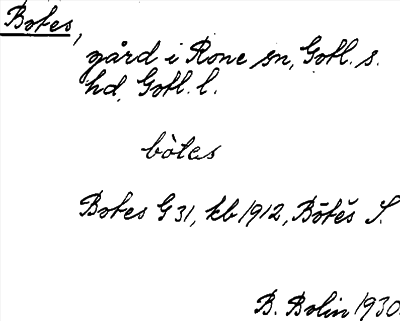 Botes,
gård i Rone sn, Gotl. s.
hd, Gotl. l.
bòtes
Botes G 31, kb 1912, Bōtĕs S.
B. Bolin 1930.